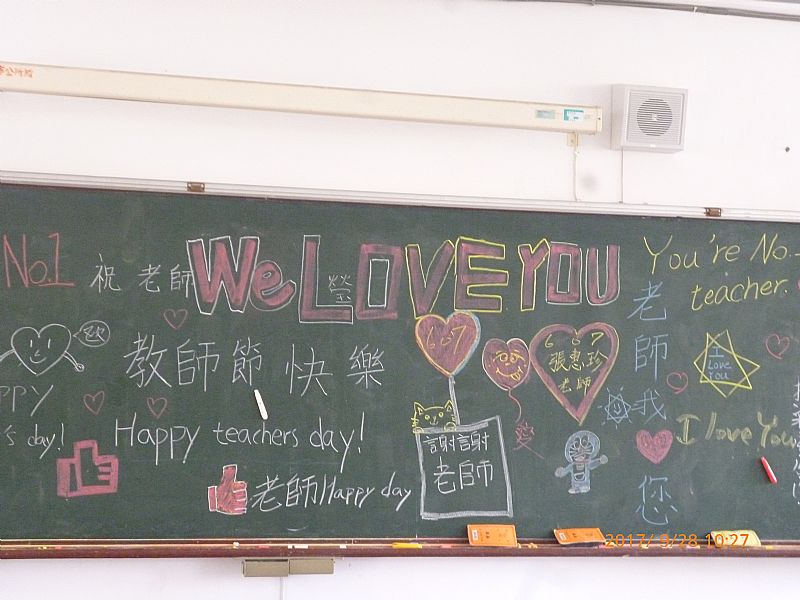 No.1
祝 老師
We LOVE YOU
瑩
You're No.
teacher.
欸
教師節 快樂
607
607
張惠珍
老師
I
Love
You
老師我
您
PPY
's day!
Happy teachers day!
愛
I love You
謝謝
老師
老師Happy day
2017/ 9/28 10:27